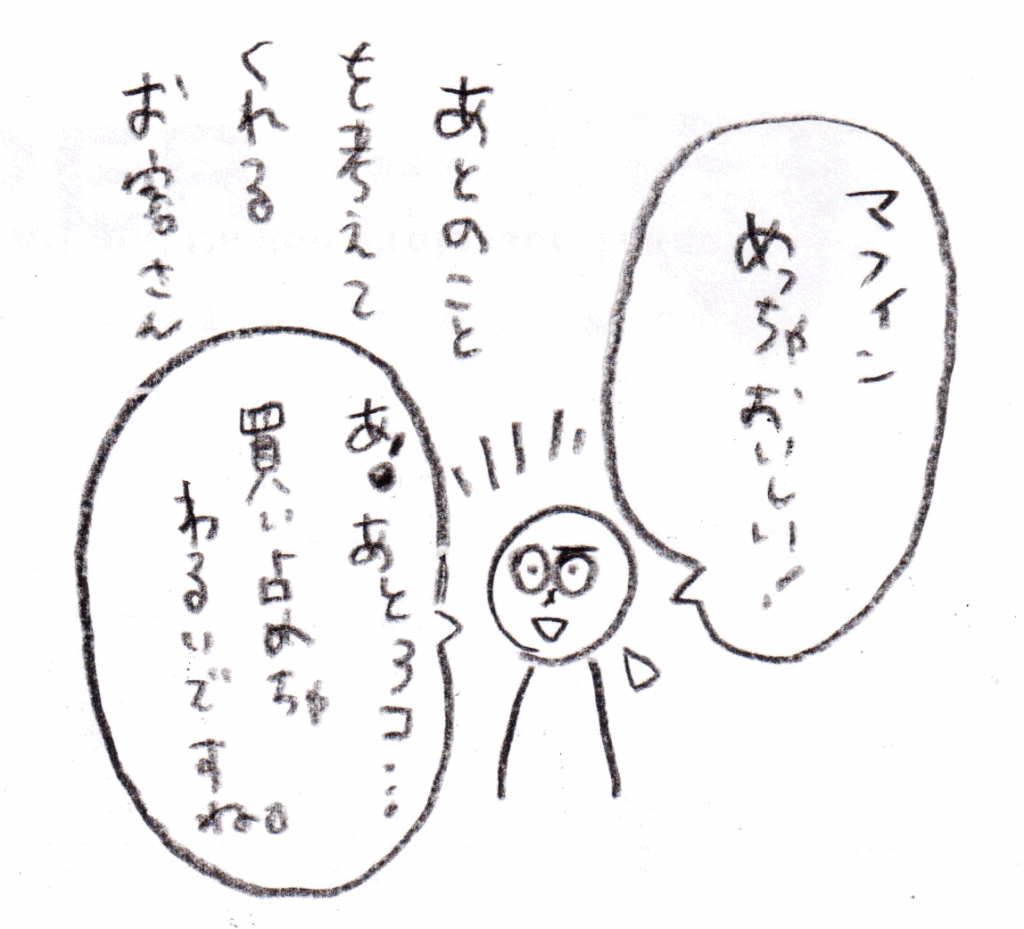 マフィン
めっちゃおいしい!
あとのこと
を考えて
くれる
お客さん
あ。あと3コ…
買い占めちゃ
わるいですね。